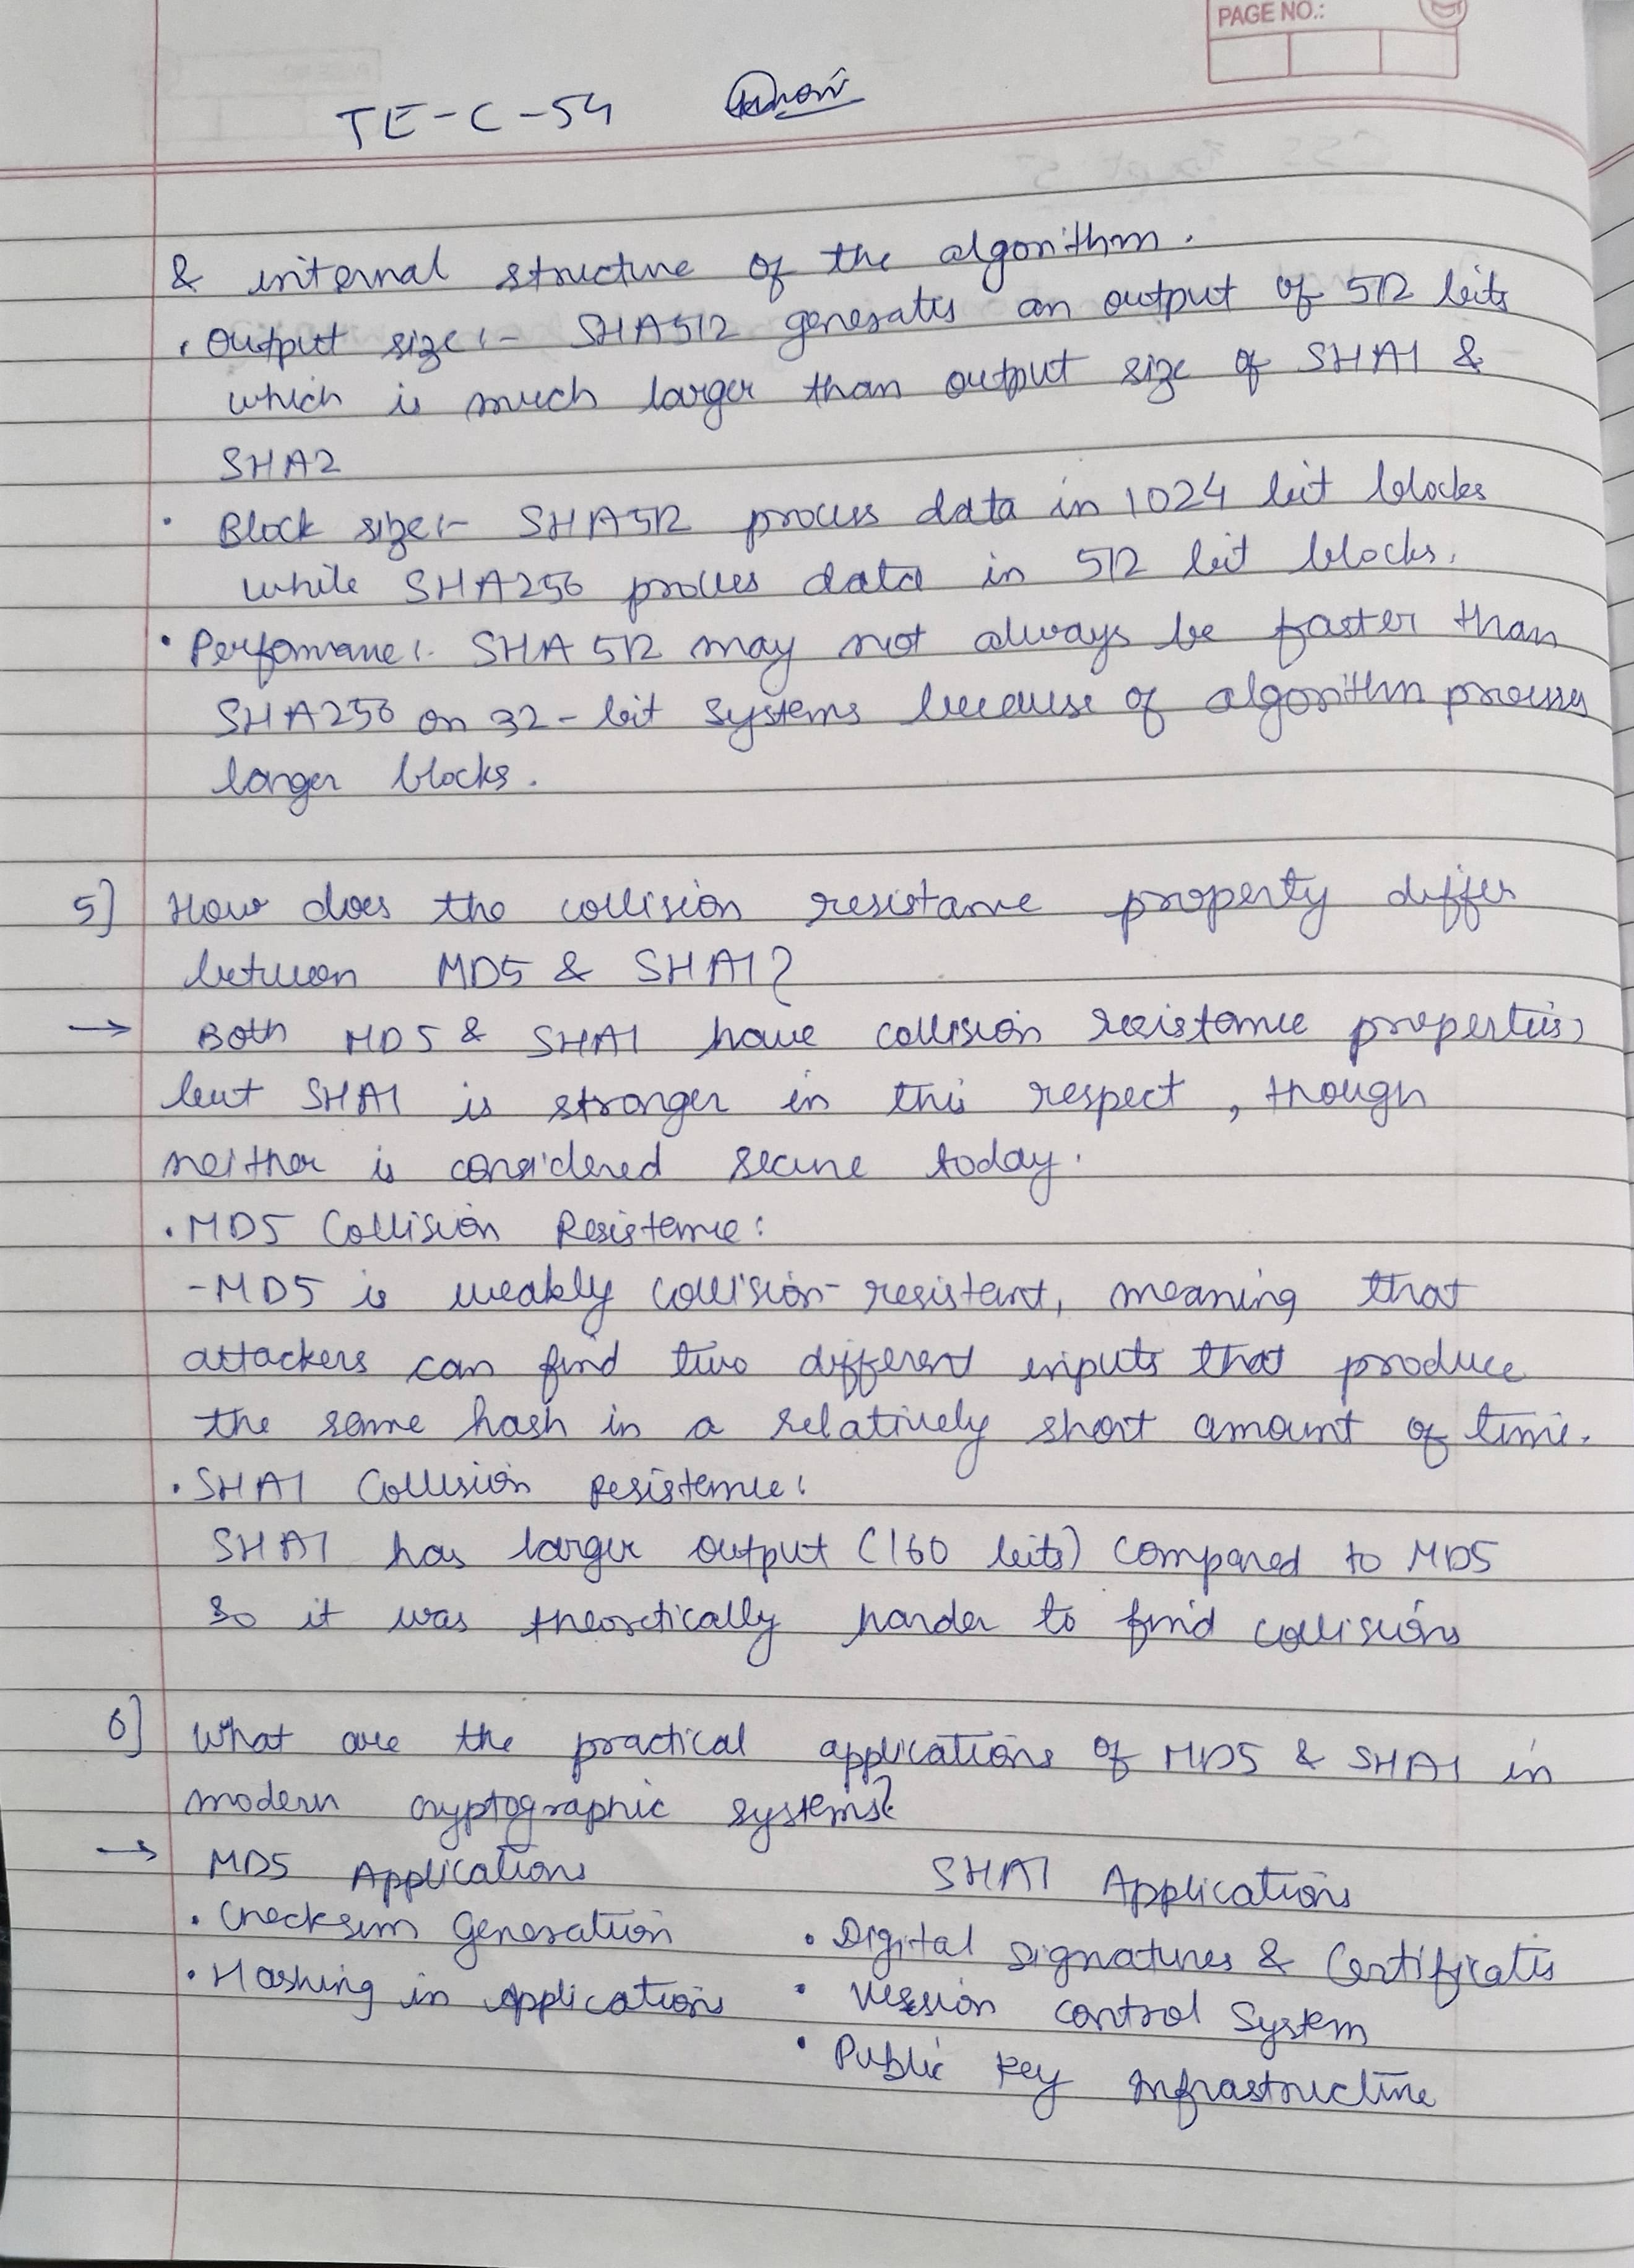 PAGE NO.:
TE-C-54
& internal structure of the algorithm.
• Output size:- SHA512 generates an output of 512 bits
which is much larger than output size of SHA1 &
SHA2
• Block size:- SHA512 process data in 1024 bit blocks
while SHA256 process data in 512 bit blocks.
• Perfomance:. SHA 512 may not always be faster than
SHA256 on 32-bit systems because of algorithm processes
larger blocks.
5] How does the collision resistance property differ
between MD5 & SHA1?
→ Both MD5 & SHA1 have collision resistance properties,
but SHA1 is stronger in this respect, though
neither is considered secure today.
• MD5 Collision Resistence:
- MD5 is weakly collision-resistant, meaning that
attackers can find two different inputs that produce
the same hash in a relatively short amount of time.
• SHA1 Collision Resistence:
SHA1 has larger output (160 bits) compared to MD5
so it was theoretically harder to find collisions
6] What are the practical applications of MD5 & SHA1 in
modern cryptographic systems?
→ MD5 Applications SHA1 Applications
• Checksum Generation • Digital Signatures & Certificates
• Hashing in Applications • Version control System
• Public key Infrastructure